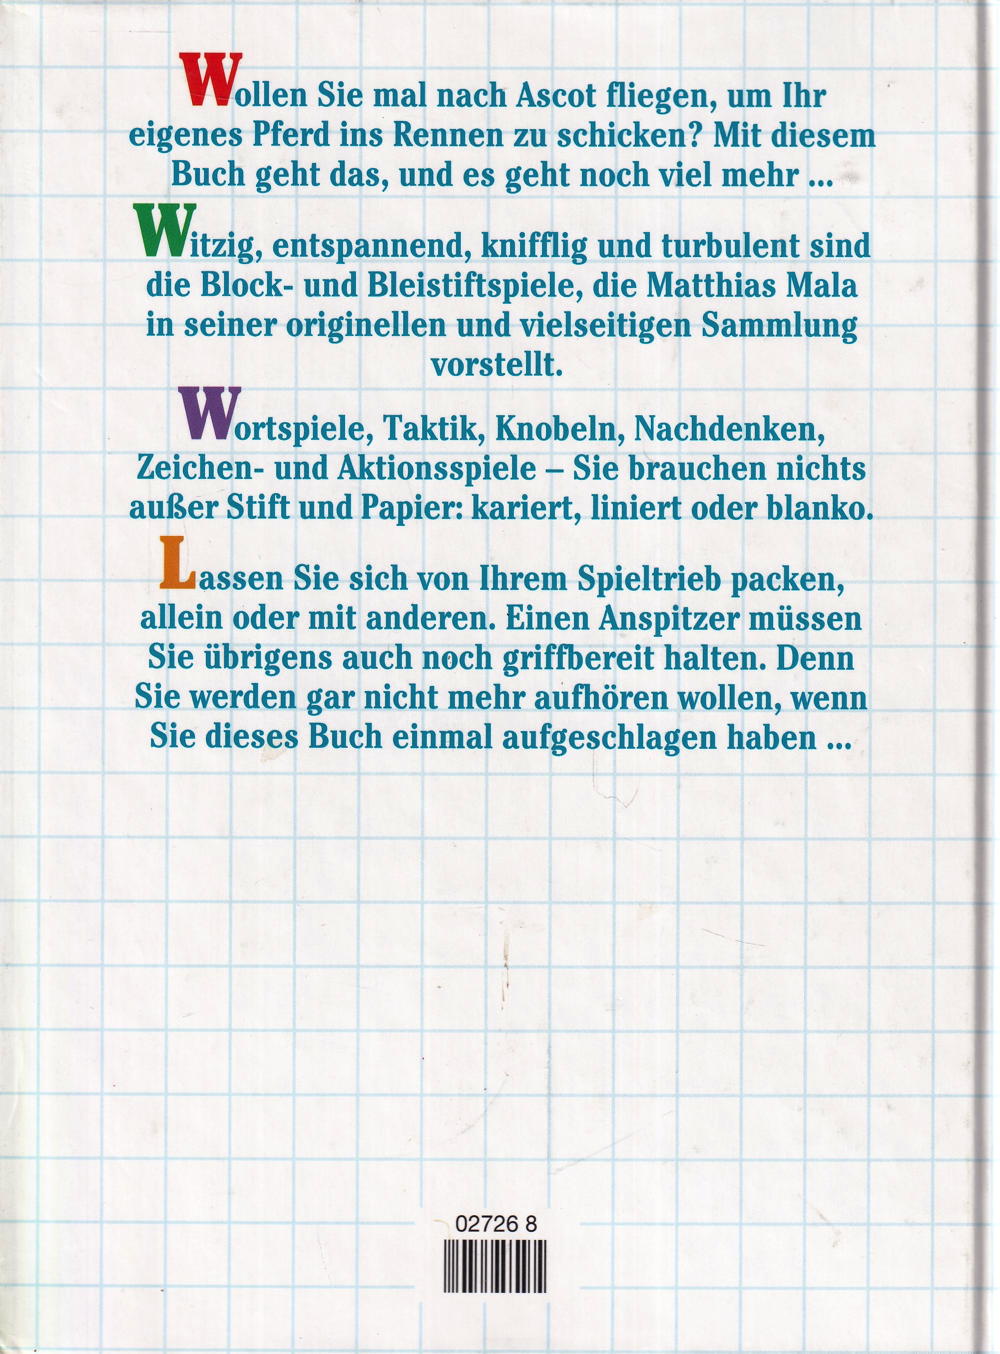 Wollen Sie mal nach Ascot fliegen, um Ihr
eigenes Pferd ins Rennen zu schicken? Mit diesem
Buch geht das, und es geht noch viel mehr ...
Witzig, entspannend, knifflig und turbulent sind
die Block- und Bleistiftspiele, die Matthias Mala
in seiner originellen und vielseitigen Sammlung
vorstellt.
Wortspiele, Taktik, Knobeln, Nachdenken,
Zeichen- und Aktionsspiele – Sie brauchen nichts
außer Stift und Papier: kariert, liniert oder blanko.
Lassen Sie sich von Ihrem Spieltrieb packen,
allein oder mit anderen. Einen Anspitzer müssen
Sie übrigens auch noch griffbereit halten. Denn
Sie werden gar nicht mehr aufhören wollen, wenn
Sie dieses Buch einmal aufgeschlagen haben ...
02726 8